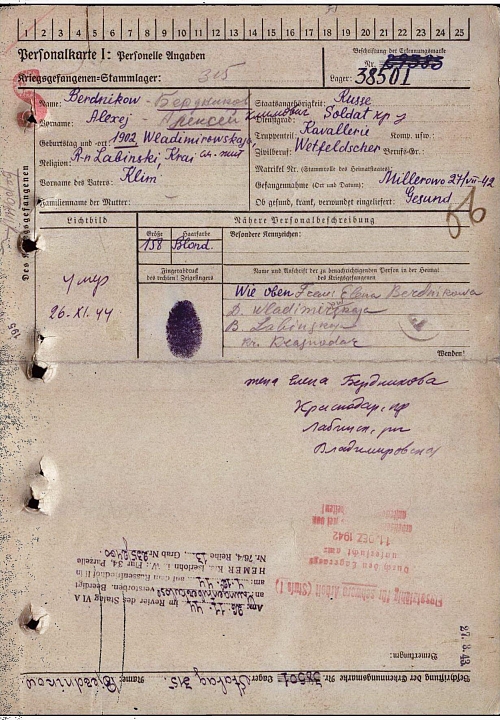 1 2 3 4 5 6 7 8 9 10 11 12 13 14 15 16 17 18 19 20 21 22 23 24 25
Personalkarte I: Personelle Angaben
Beschriftung der Erkennungsmarke
Nr.
Kriegsgefangenen-Stammlager: 315
Lager: 38501
Des Kriegsgefangenen
Name: Berdnikow - Бердников
Staatsangehörigkeit: Russe
Vorname: Alexej - Алексей Климович
Dienstgrad: Soldat
Geburtstag und -ort: 1902, Wladimirowskaja
Truppenteil: Kavallerie Komp. usw.:
R-n Labinski, Krai
Zivilberuf: Wetfeldscher Berufs-Gr.:
Religion:
Matrikel Nr. (Stammrolle des Heimatstaates):
Vorname des Vaters: Klim
Gefangennahme (Ort und Datum): Millerowo 27/VII-42
Familienname der Mutter:
Ob gesund, krank, verwundet eingeliefert: Gesund
Lichtbild
Nähere Personalbeschreibung
Größe Haarfarbe Besondere Kennzeichen:
158 Blond.
Fingerabdruck
des rechten! Zeigefingers
Name und Anschrift der zu benachrichtigenden Person in der Heimat
des Kriegsgefangenen
умер
26.XI.44
Wie oben Frau Elena Berdnikowa
D. Wladimirskaja
B. Labinskaja
Kr. Krasnodar
Wenden!
жена Елена Бердникова
Краснодар, кр
Лабинск, рн
Владимировская
11. DEZ. 1942
Durch den Lagerarzt
untersucht am:
Einsatzfähig für schwere Arbeit (Stufe I)
Am: 26.11.44 im Revier des Stalag VI A
an Lungentuberkulose verstorben. Beerdigt
am: 4.12.44 auf dem Russenfriedhof II
HEMER Kr. Iserlohn i. W., Flur 34, Parzelle
Nr. 76/4, Reihe 13 Grab Nr.
27.3.43
Bemerkungen:
Beschriftung der Erkennungsmarke Nr. 38501 Lager: Stalag 315. Name: Berdnikow